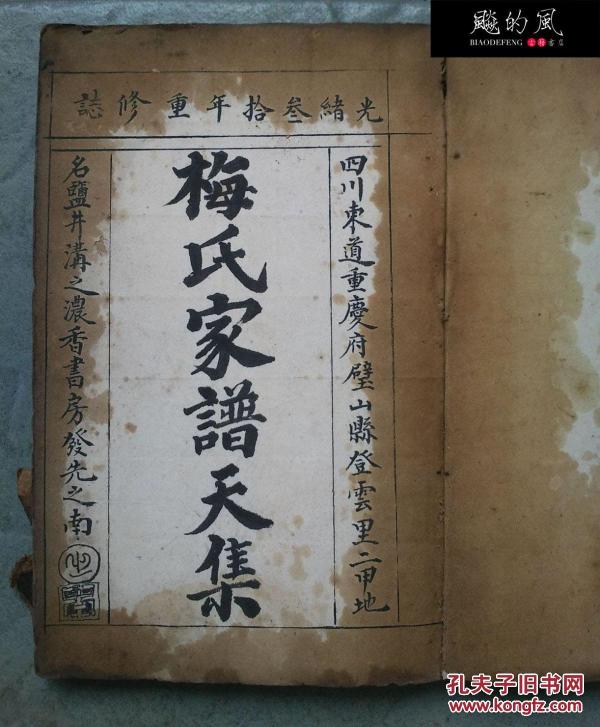 飈的風
BIAODEFENG
書店
光緒叁拾年重修誌
四川東道重慶府璧山縣登雲里二甲地
梅氏家譜天集
名鹽井溝之濃香書房發先之南
孔夫子旧书网
www.kongfz.com